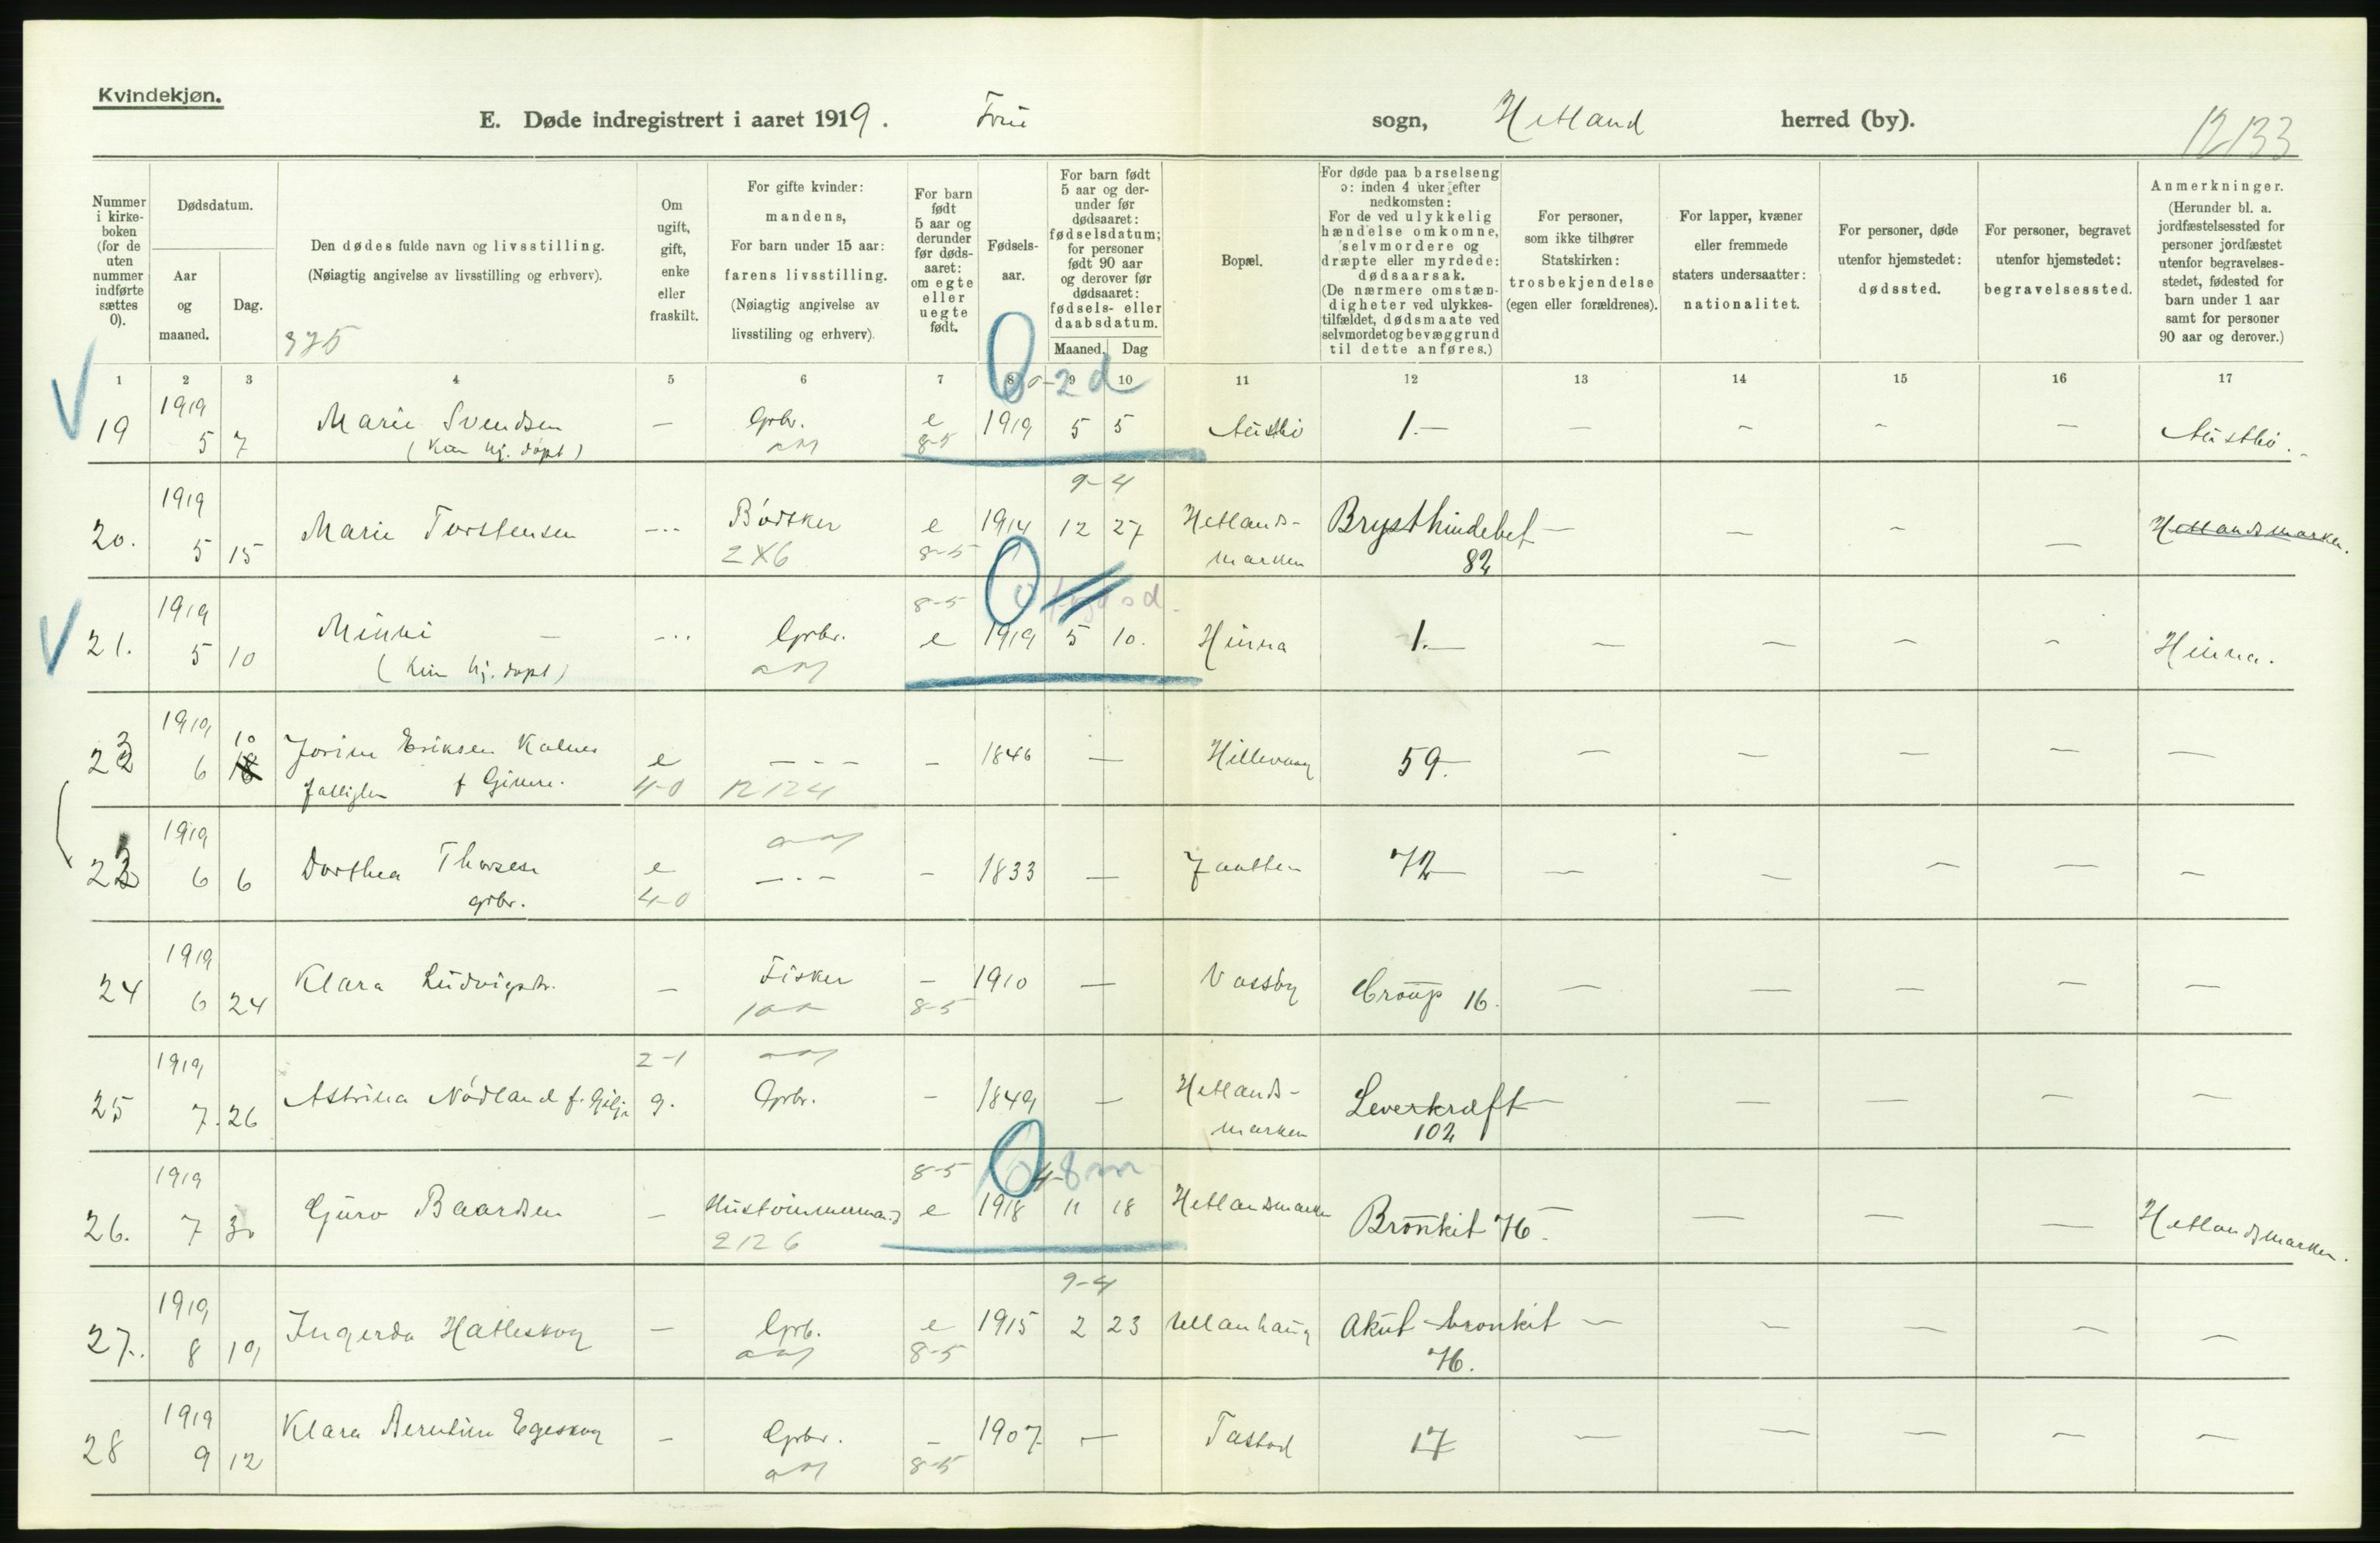 Kvindekjøn.
E. Døde indregistrert i aaret 1919. Frue sogn, Hetland herred (by).
12133
Nummer i kirke- boken (for de uten nummer indførte sættes 0).
Dødsdatum.
Aar og maaned.
Dag.
Den dødes fulde navn og livsstilling.
(Nøiagtig angivelse av livsstilling og erhverv).
375
Om ugift, gift, enke eller fraskilt.
For gifte kvinder: mandens,
For barn under 15 aar: farens livsstilling.
(Nøiagtig angivelse av livsstiling og erhverv).
For barn født 5 aar og derunder før døds- aaret: om egte eller uegte født.
Fødsels- aar.
For barn født 5 aar og der- under før dødsaaret: fødselsdatum; for personer født 90 aar og derover før dødsaaret: fødsels- eller daabsdatum.
Maaned. Dag
Bopæl.
For døde paa barselseng ɔ: inden 4 uker efter nedkomsten:
For de ved ulykkelig hændelse omkomne, selvmordere og dræpte eller myrdede: dødsaarsak.
(De nærmere omstæn- digheter ved ulykkes- tilfældet, dødsmaate ved selvmordet og bevæggrund til dette anføres.)
For personer, som ikke tilhører Statskirken: trosbekjendelse (egen eller forældrenes).
For lapper, kvæner eller fremmede staters undersaatter: nationalitet.
For personer, døde utenfor hjemstedet: dødssted.
For personer, begravet utenfor hjemstedet: begravelsessted.
Anmerkninger.
(Herunder bl. a. jordfæstelsessted for personer jordfæstet utenfor begravelses- stedet, fødested for barn under 1 aar samt for personer 90 aar og derover.)
1 2 3 4 5 6 7 8 9 10 11 12 13 14 15 16 17
0-2 d
19 1919 5 7 Marie Svendsen — Grbr. e 1919 5 5 Austbø 1.— — — — — Austbø.
(Kun hj. døpt) 8-5
9-4
20. 1919 5 15 Marie Torstensen — Bødker e 1914 12 27 Hetlands- marken Brysthindebet — — — — Hetlandsmarken.
2X6 8-5 82
8-5
21. 1919 5 10 — — Grbr. e 1919 5 10. Hinna 1.— — — — — Hinna.
(Kun hj. døpt)
22 1919 6 10 Eriksen Kalnes e — — 1846 — Hillevaag 59.— — — — — —
f. 4-0 12124
23 1919 6 6 Dorthea Thorsen e — — 1833 — Jaatten 72 — — — — —
grbr. 4-0
24 1919 6 24 Klara Ludvigsdtr. — Fisker — 1910 — Vassøy Croup 16. — — — — —
8-5
2-1
25 1919 7. 26 Astrina Nødland f. Gilje g. Grbr. — 1849 — Hetlands- marken Leverkræft — — — — —
102
8-5 8 m
26. 1919 7 30 Guro Baardsen — Hustømmermand e 1918 11 18 Hetlandsmarken Bronkit 76. — — — — Hetlandsmarken.
2126
9-4
27. 1919 8 19 Ingerda Hatleskog — Grb. e 1915 2 23 Ullanhaug Akut bronkit — — — — —
8-5 76.
28 1919 9 12 Klara Berntine Egeskog — Grbr. — 1907 — Tastad 17 — — — — —
8-5